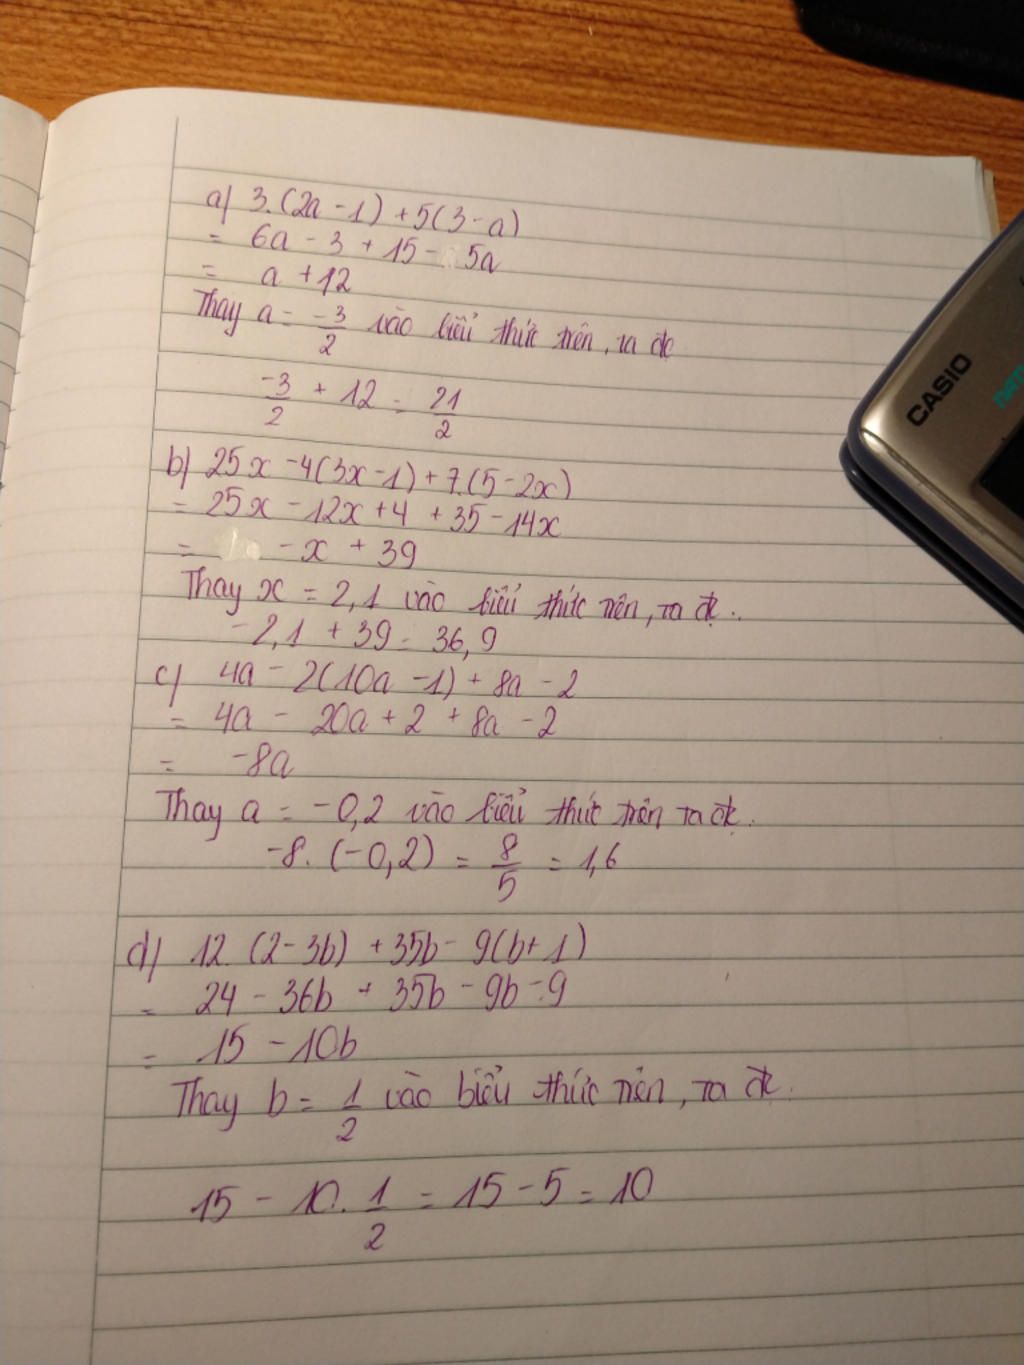 a) 3.(2a - 1) + 5(3 - a)
= 6a - 3 + 15 - 5a
= a + 12
Thay a = -3/2 vào biểu thức trên, ta đc
-3/2 + 12 = 21/2
b) 25x - 4(3x - 1) + 7.(5 - 2x)
= 25x - 12x + 4 + 35 - 14x
= - x + 39
Thay x = 2,1 vào biểu thức trên, ta đc.
- 2,1 + 39 = 36,9
c) 4a - 2(10a - 1) + 8a - 2
= 4a - 20a + 2 + 8a - 2
= -8a
Thay a = -0,2 vào biểu thức trên ta đc.
-8. (-0,2) = 8/5 = 1,6
d) 12. (2 - 3b) + 35b - 9(b + 1)
= 24 - 36b + 35b - 9b - 9
= 15 - 10b
Thay b = 1/2 vào biểu thức trên, ta đc.
15 - 10. 1/2 = 15 - 5 = 10
CASIO